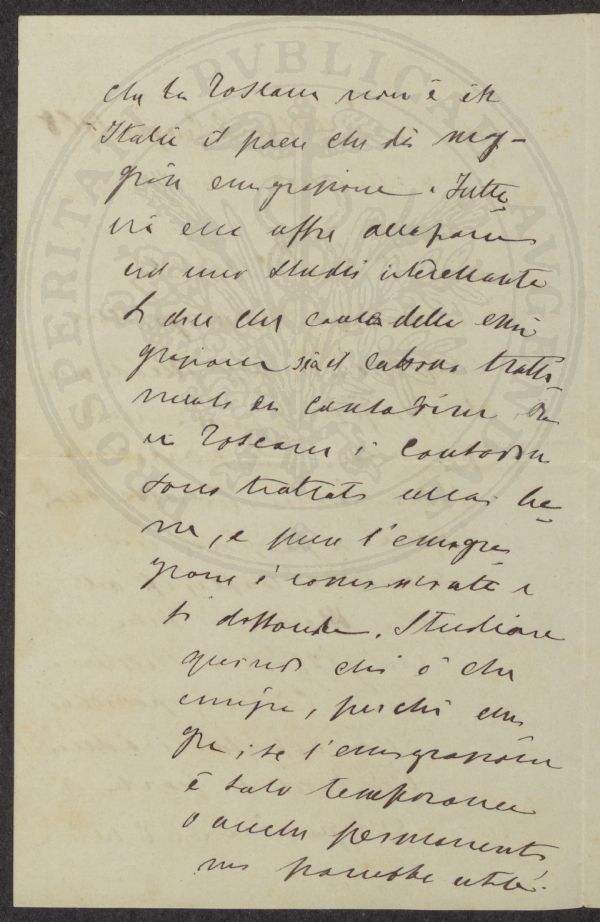 che la Toscana non è in
Italia il paese che dà mag-
giore emigrazione. Tutta
via essa offre
ad uno studio interessante
Si dice che causa della emi
grazione sia il cattivo tratta
mento dei contadini. Ora
in Toscana i contadini
sono trattati assai be
ne, e pure l'emigra
zione è cominciata e
si diffonde. Studiare
quindi chi è che
emigra, perchè emi
gra, se l'emigrazione
è solo temporanea
o anche permanente
mi parrebbe utile.
PROSPERITAS PVBLICA AVCTA